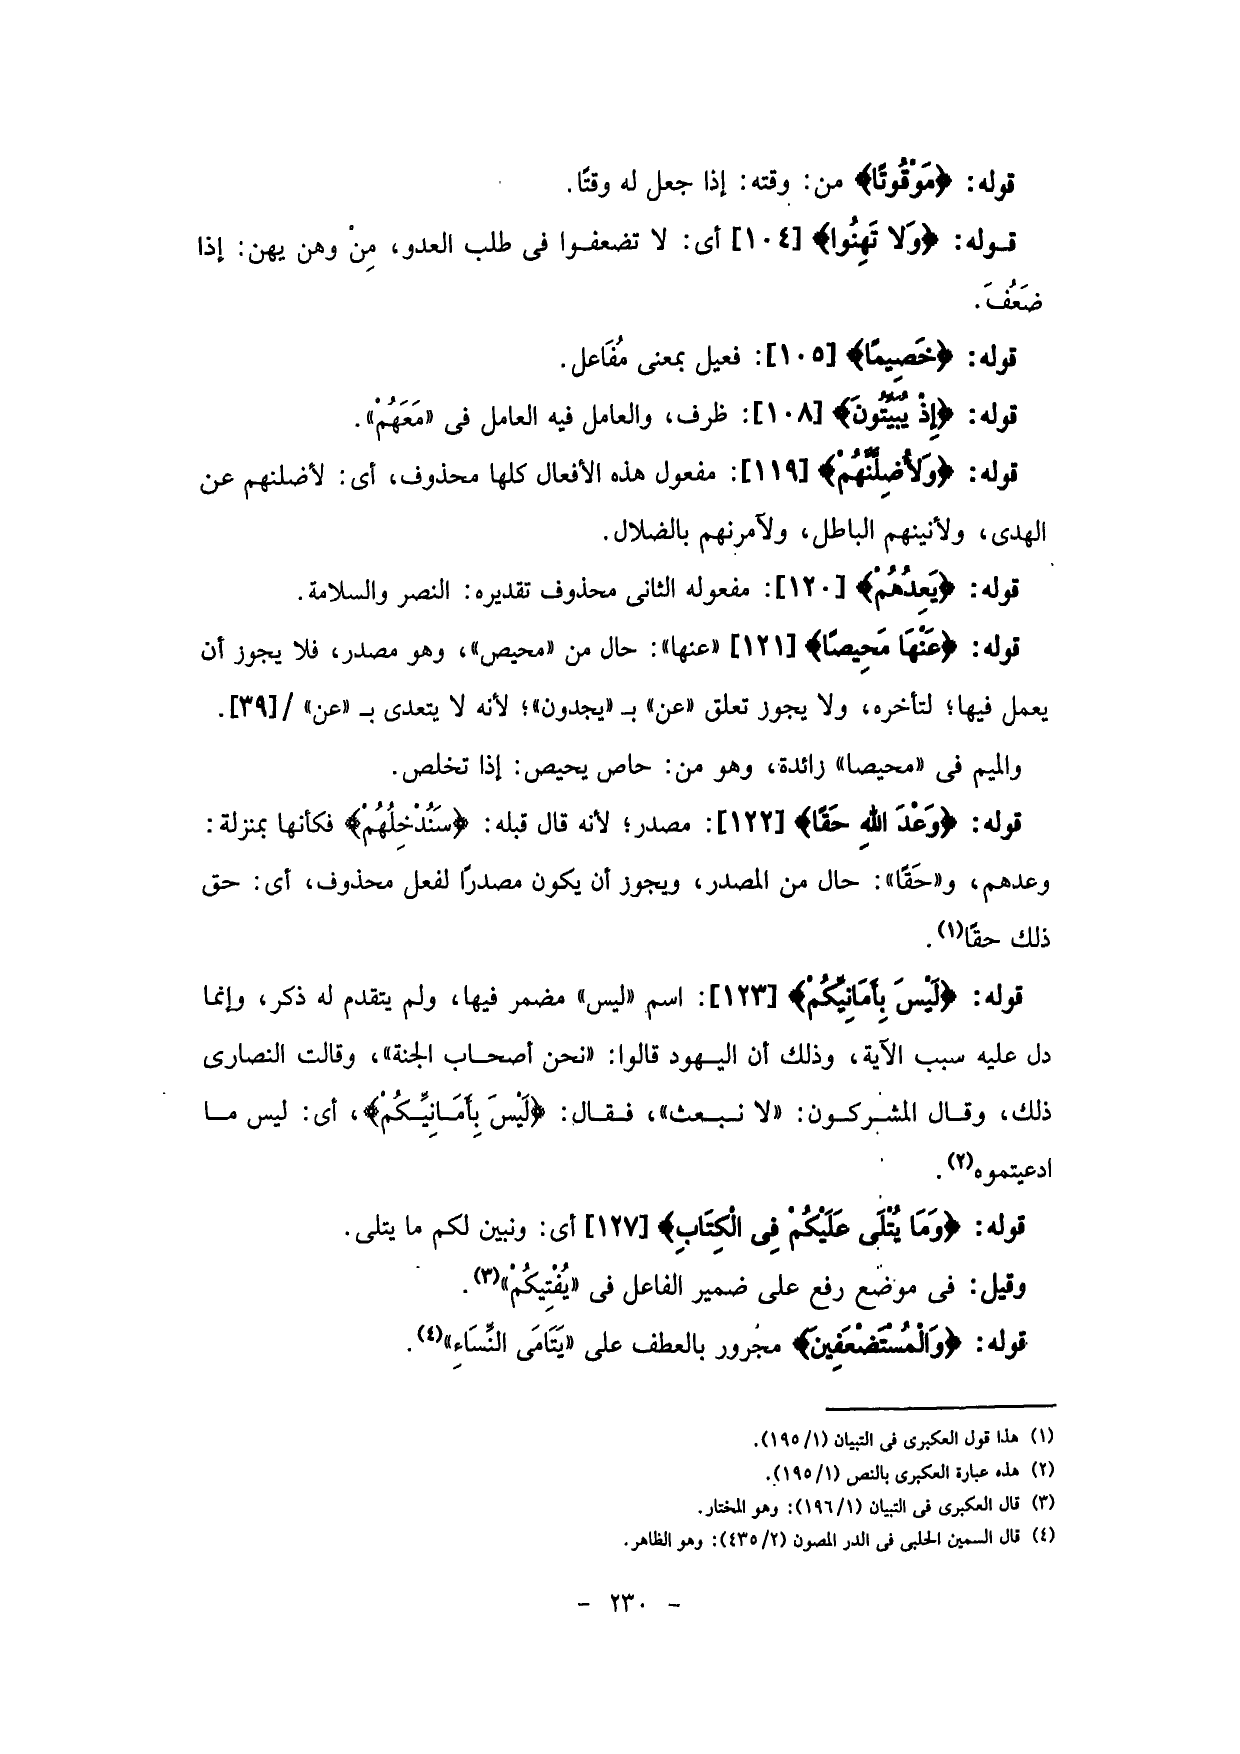 قوله: ﴿مَوْقُوتًا﴾ من: وقته: إذا جعل له وقتًا.
قوله: ﴿وَلا تَهِنُوا﴾ [١٠٤] أى: لا تضعفوا فى طلب العدو، مِنْ وهن يهن: إذا
ضَعُفَ.
قوله: ﴿خَصِيمًا﴾ [١٠٥]: فعيل بمعنى مُفَاعل.
قوله: ﴿إِذْ يُبَيِّتُونَ﴾ [١٠٨]: ظرف، والعامل فيه العامل فى «مَعَهُمْ».
قوله: ﴿وَلأُضِلَّنَّهُمْ﴾ [١١٩]: مفعول هذه الأفعال كلها محذوف، أى: لأضلنهم عن
الهدى، ولأنينهم الباطل، ولآمرنهم بالضلال.
قوله: ﴿يَعِدُهُمْ﴾ [١٢٠]: مفعوله الثانى محذوف تقديره: النصر والسلامة.
قوله: ﴿عَنْهَا مَحِيصًا﴾ [١٢١] «عنها»: حال من «محيص»، وهو مصدر، فلا يجوز أن
يعمل فيها؛ لتأخره، ولا يجوز تعلق «عن» بـ «يجدون»؛ لأنه لا يتعدى بـ «عن» /[٣٩].
والميم فى «محيصا» زائدة، وهو من: حاص يحيص: إذا تخلص.
قوله: ﴿وَعْدَ اللهِ حَقًا﴾ [١٢٢]: مصدر؛ لأنه قال قبله: ﴿سَنُدْخِلُهُمْ﴾ فكأنها بمنزلة:
وعدهم، و«حَقًا»: حال من المصدر، ويجوز أن يكون مصدرًا لفعل محذوف، أى: حق
ذلك حقًا(١).
قوله: ﴿لَيْسَ بِأَمَانِيِّكُمْ﴾ [١٢٣]: اسم «ليس» مضمر فيها، ولم يتقدم له ذكر، وإنما
دل عليه سبب الآية، وذلك أن اليهود قالوا: «نحن أصحاب الجنة»، وقالت النصارى
ذلك، وقال المشركون: «لا نبعث»، فقال: ﴿لَيْسَ بِأَمَانِيِّكُمْ﴾، أى: ليس ما
ادعيتموه(٢).
قوله: ﴿وَمَا يُتْلَى عَلَيْكُمْ فِى الْكِتَابِ﴾ [١٢٧] أى: ونبين لكم ما يتلى.
وقيل: فى موضع رفع على ضمير الفاعل فى «يُفْتِيكُمْ»(٣).
قوله: ﴿وَالْمُسْتَضْعَفِينَ﴾ مجرور بالعطف على «يَتَامَى النِّسَاءِ»(٤).
(١) هذا قول العكبرى فى التبيان (١/ ١٩٥).
(٢) هذه عبارة العكبرى بالنص (١/ ١٩٥).
(٣) قال العكبرى فى التبيان (١/ ١٩٦): وهو المختار.
(٤) قال السمين الحلبى فى الدر المصون (٢/ ٤٣٥): وهو الظاهر.
- ٢٣٠ -